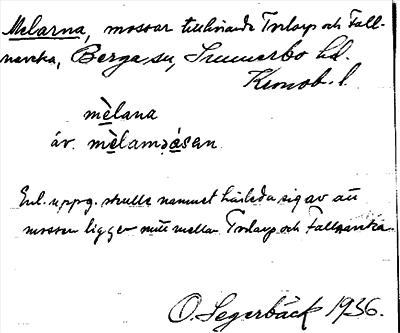 Melarna, mossar tillhörande Torlarp och Fall-
naveka, Berga sn, Sunnerbo hd.
Kronob. l.
mèlana
äv. mèlamọásen
Enl. uppg. skulle namnet härleda sig av att
mossen ligger mitt mellan Torlarp och Fallnaveka.
O. Segerbäck 1936.